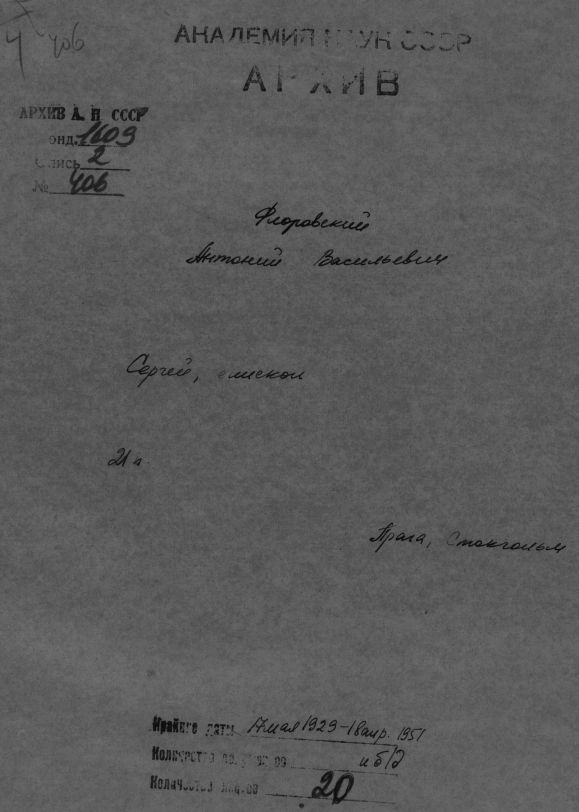 4 406
АКАДЕМИЯ НАУК СССР
АРХИВ
АРХИВ А. Н. СССР
Фонд 1609
Опись 2
№ 406
Флоровский
Антоний Васильевич
Сергей, епископ
21 п.
Прага, Стокгольм
Крайние даты 17 мая 1929 – 18 апр. 1951
Количество
и б/д
Количество листов 20